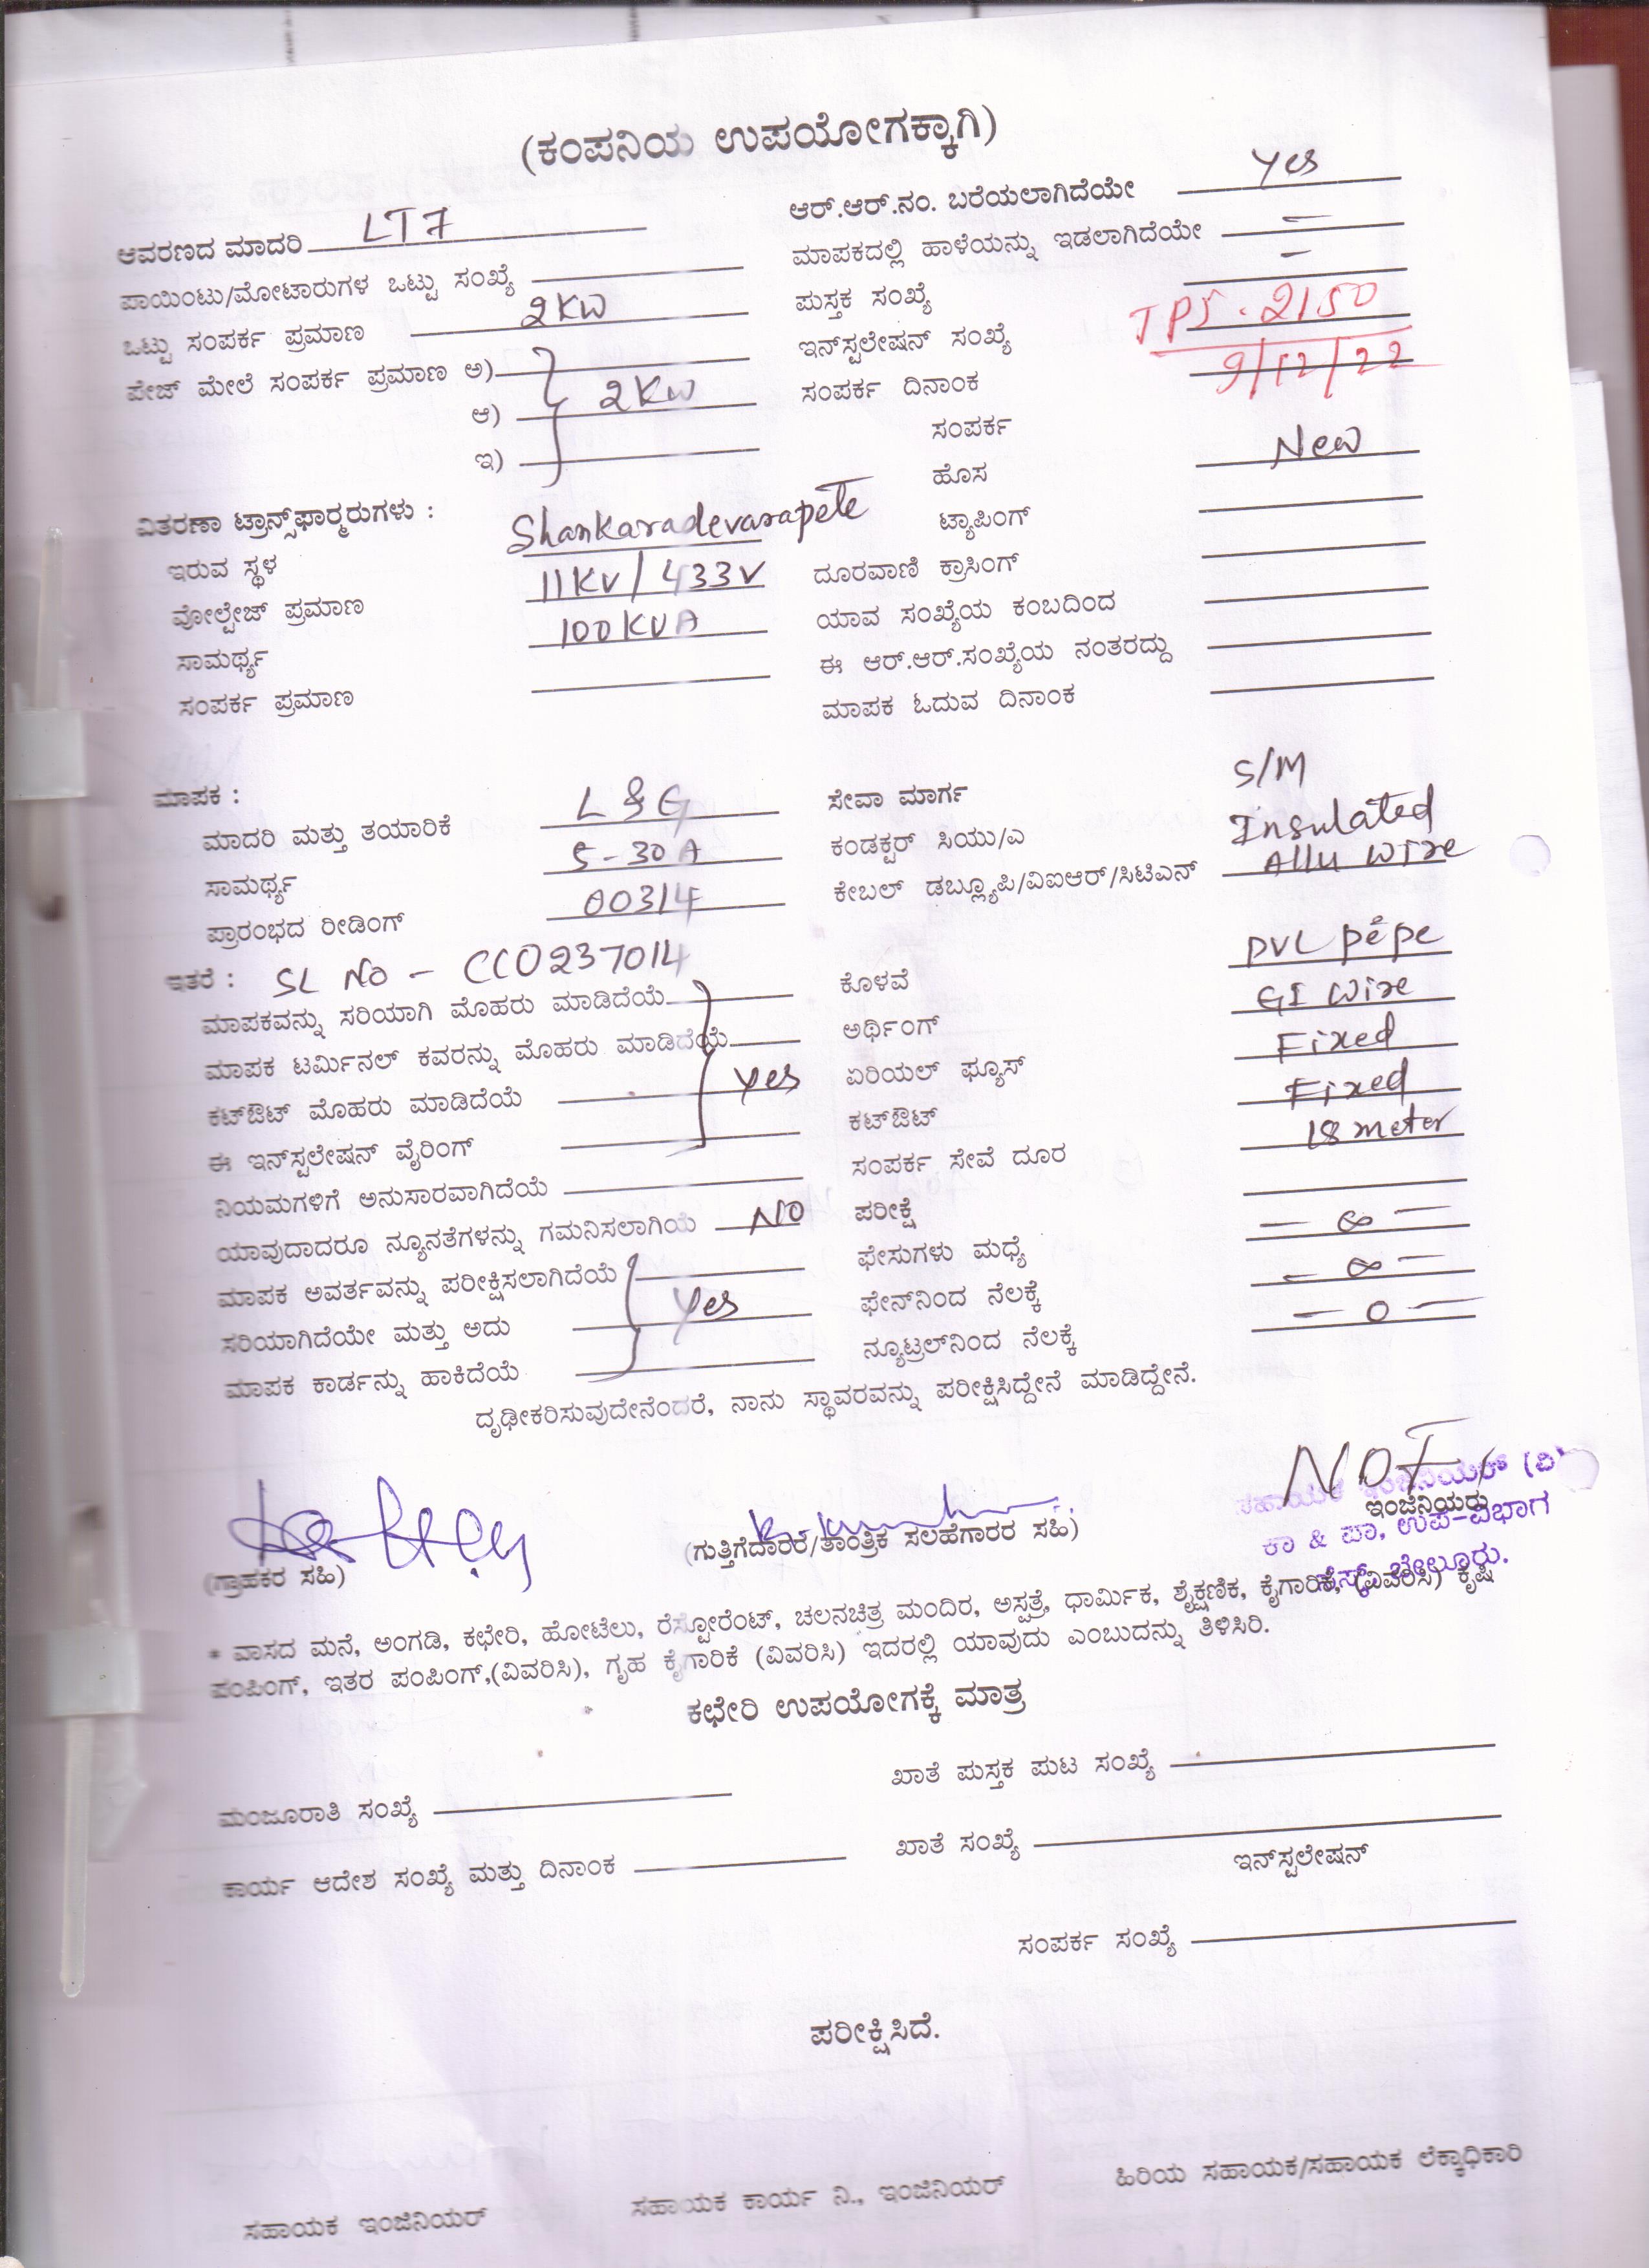 (ಕಂಪನಿಯ ಉಪಯೋಗಕ್ಕಾಗಿ)
ಆವರಣದ ಮಾದರಿ LT7
ಪಾಯಿಂಟು/ಮೋಟಾರುಗಳ ಒಟ್ಟು ಸಂಖ್ಯೆ
ಒಟ್ಟು ಸಂಪರ್ಕ ಪ್ರಮಾಣ 2KW
ಪೇಜ್ ಮೇಲೆ ಸಂಪರ್ಕ ಪ್ರಮಾಣ ಅ)
ಆ) 2KW
ಇ)
ಆರ್.ಆರ್.ನಂ. ಬರೆಯಲಾಗಿದೆಯೇ Yes
ಮಾಪಕದಲ್ಲಿ ಹಾಳೆಯನ್ನು ಇಡಲಾಗಿದೆಯೇ —
ಪುಸ್ತಕ ಸಂಖ್ಯೆ —
ಇನ್‌ಸ್ಟಲೇಷನ್ ಸಂಖ್ಯೆ TP5.2150
ಸಂಪರ್ಕ ದಿನಾಂಕ 9/12/22
ಸಂಪರ್ಕ
ಹೊಸ New
ಟ್ಯಾಪಿಂಗ್
ದೂರವಾಣಿ ಕ್ರಾಸಿಂಗ್
ಯಾವ ಸಂಖ್ಯೆಯ ಕಂಬದಿಂದ
ಈ ಆರ್.ಆರ್.ಸಂಖ್ಯೆಯ ನಂತರದ್ದು
ಮಾಪಕ ಓದುವ ದಿನಾಂಕ
ವಿತರಣಾ ಟ್ರಾನ್ಸ್‌ಫಾರ್ಮರುಗಳು :
ಇರುವ ಸ್ಥಳ Shankaradevarapete
ವೋಲ್ಟೇಜ್ ಪ್ರಮಾಣ 11KV/433V
ಸಾಮರ್ಥ್ಯ 100KVA
ಸಂಪರ್ಕ ಪ್ರಮಾಣ
ಮಾಪಕ :
ಮಾದರಿ ಮತ್ತು ತಯಾರಿಕೆ L&G
ಸಾಮರ್ಥ್ಯ 5-30A
ಪ್ರಾರಂಭದ ರೀಡಿಂಗ್ 00314
ಇತರೆ : SL NO - CC0237014
ಮಾಪಕವನ್ನು ಸರಿಯಾಗಿ ಮೊಹರು ಮಾಡಿದೆಯೆ
ಮಾಪಕ ಟರ್ಮಿನಲ್ ಕವರನ್ನು ಮೊಹರು ಮಾಡಿದೆಯೆ
ಕಟ್‌ಔಟ್ ಮೊಹರು ಮಾಡಿದೆಯೆ Yes
ಈ ಇನ್‌ಸ್ಟಲೇಷನ್ ವೈರಿಂಗ್
ನಿಯಮಗಳಿಗೆ ಅನುಸಾರವಾಗಿದೆಯೆ
ಯಾವುದಾದರೂ ನ್ಯೂನತೆಗಳನ್ನು ಗಮನಿಸಲಾಗಿಯೆ NO
ಮಾಪಕ ಅವರ್ತವನ್ನು ಪರೀಕ್ಷಿಸಲಾಗಿದೆಯೆ
ಸರಿಯಾಗಿದೆಯೇ ಮತ್ತು ಅದು Yes
ಮಾಪಕ ಕಾರ್ಡನ್ನು ಹಾಕಿದೆಯೆ
ಸೇವಾ ಮಾರ್ಗ S/M
ಕಂಡಕ್ಟರ್ ಸಿಯು/ಎ Insulated
ಕೇಬಲ್ ಡಬ್ಲ್ಯೂಪಿ/ವಿಐಆರ್/ಸಿಟಿಎಸ್ Allu Wire
ಕೊಳವೆ PVC pipe
ಅರ್ಥಿಂಗ್ GI Wire
ಏರಿಯಲ್ ಫ್ಯೂಸ್ Fixed
ಕಟ್‌ಔಟ್ Fixed
ಸಂಪರ್ಕ ಸೇವೆ ದೂರ 18 meter
ಪರೀಕ್ಷೆ
ಫೇಸುಗಳು ಮಧ್ಯೆ — ∞ —
ಫೇಸ್‌ನಿಂದ ನೆಲಕ್ಕೆ — ∞ —
ನ್ಯೂಟ್ರಲ್‌ನಿಂದ ನೆಲಕ್ಕೆ — 0 —
ದೃಢೀಕರಿಸುವುದೇನೆಂದರೆ, ನಾನು ಸ್ಥಾವರವನ್ನು ಪರೀಕ್ಷಿಸಿದ್ದೇನೆ ಮಾಡಿದ್ದೇನೆ.
(ಗ್ರಾಹಕರ ಸಹಿ)
(ಗುತ್ತಿಗೆದಾರರ/ತಾಂತ್ರಿಕ ಸಲಹೆಗಾರರ ಸಹಿ)
ಸಹಾಯಕ ಇಂಜಿನಿಯರ್ (ವಿ)
ಇಂಜಿನಿಯರು
ಕಾ & ಪಾ, ಉಪ-ವಿಭಾಗ
ಸೆಸ್ಕ್, ಬೇಲೂರು.
* ವಾಸದ ಮನೆ, ಅಂಗಡಿ, ಕಛೇರಿ, ಹೋಟೆಲು, ರೆಸ್ಟೋರೆಂಟ್, ಚಲನಚಿತ್ರ ಮಂದಿರ, ಅಸ್ಪತ್ರೆ, ಧಾರ್ಮಿಕ, ಶೈಕ್ಷಣಿಕ, ಕೈಗಾರಿಕೆ, (ವಿವರಿಸಿ) ಕೃಷಿ
ಪಂಪಿಂಗ್, ಇತರ ಪಂಪಿಂಗ್,(ವಿವರಿಸಿ), ಗೃಹ ಕೈಗಾರಿಕೆ (ವಿವರಿಸಿ) ಇದರಲ್ಲಿ ಯಾವುದು ಎಂಬುದನ್ನು ತಿಳಿಸಿರಿ.
ಕಛೇರಿ ಉಪಯೋಗಕ್ಕೆ ಮಾತ್ರ
ಮಂಜೂರಾತಿ ಸಂಖ್ಯೆ
ಖಾತೆ ಪುಸ್ತಕ ಪುಟ ಸಂಖ್ಯೆ
ಕಾರ್ಯ ಆದೇಶ ಸಂಖ್ಯೆ ಮತ್ತು ದಿನಾಂಕ
ಖಾತೆ ಸಂಖ್ಯೆ
ಇನ್‌ಸ್ಟಲೇಷನ್
ಸಂಪರ್ಕ ಸಂಖ್ಯೆ
ಪರೀಕ್ಷಿಸಿದೆ.
ಸಹಾಯಕ ಇಂಜಿನಿಯರ್
ಸಹಾಯಕ ಕಾರ್ಯ ನಿ., ಇಂಜಿನಿಯರ್
ಹಿರಿಯ ಸಹಾಯಕ/ಸಹಾಯಕ ಲೆಕ್ಕಾಧಿಕಾರಿ